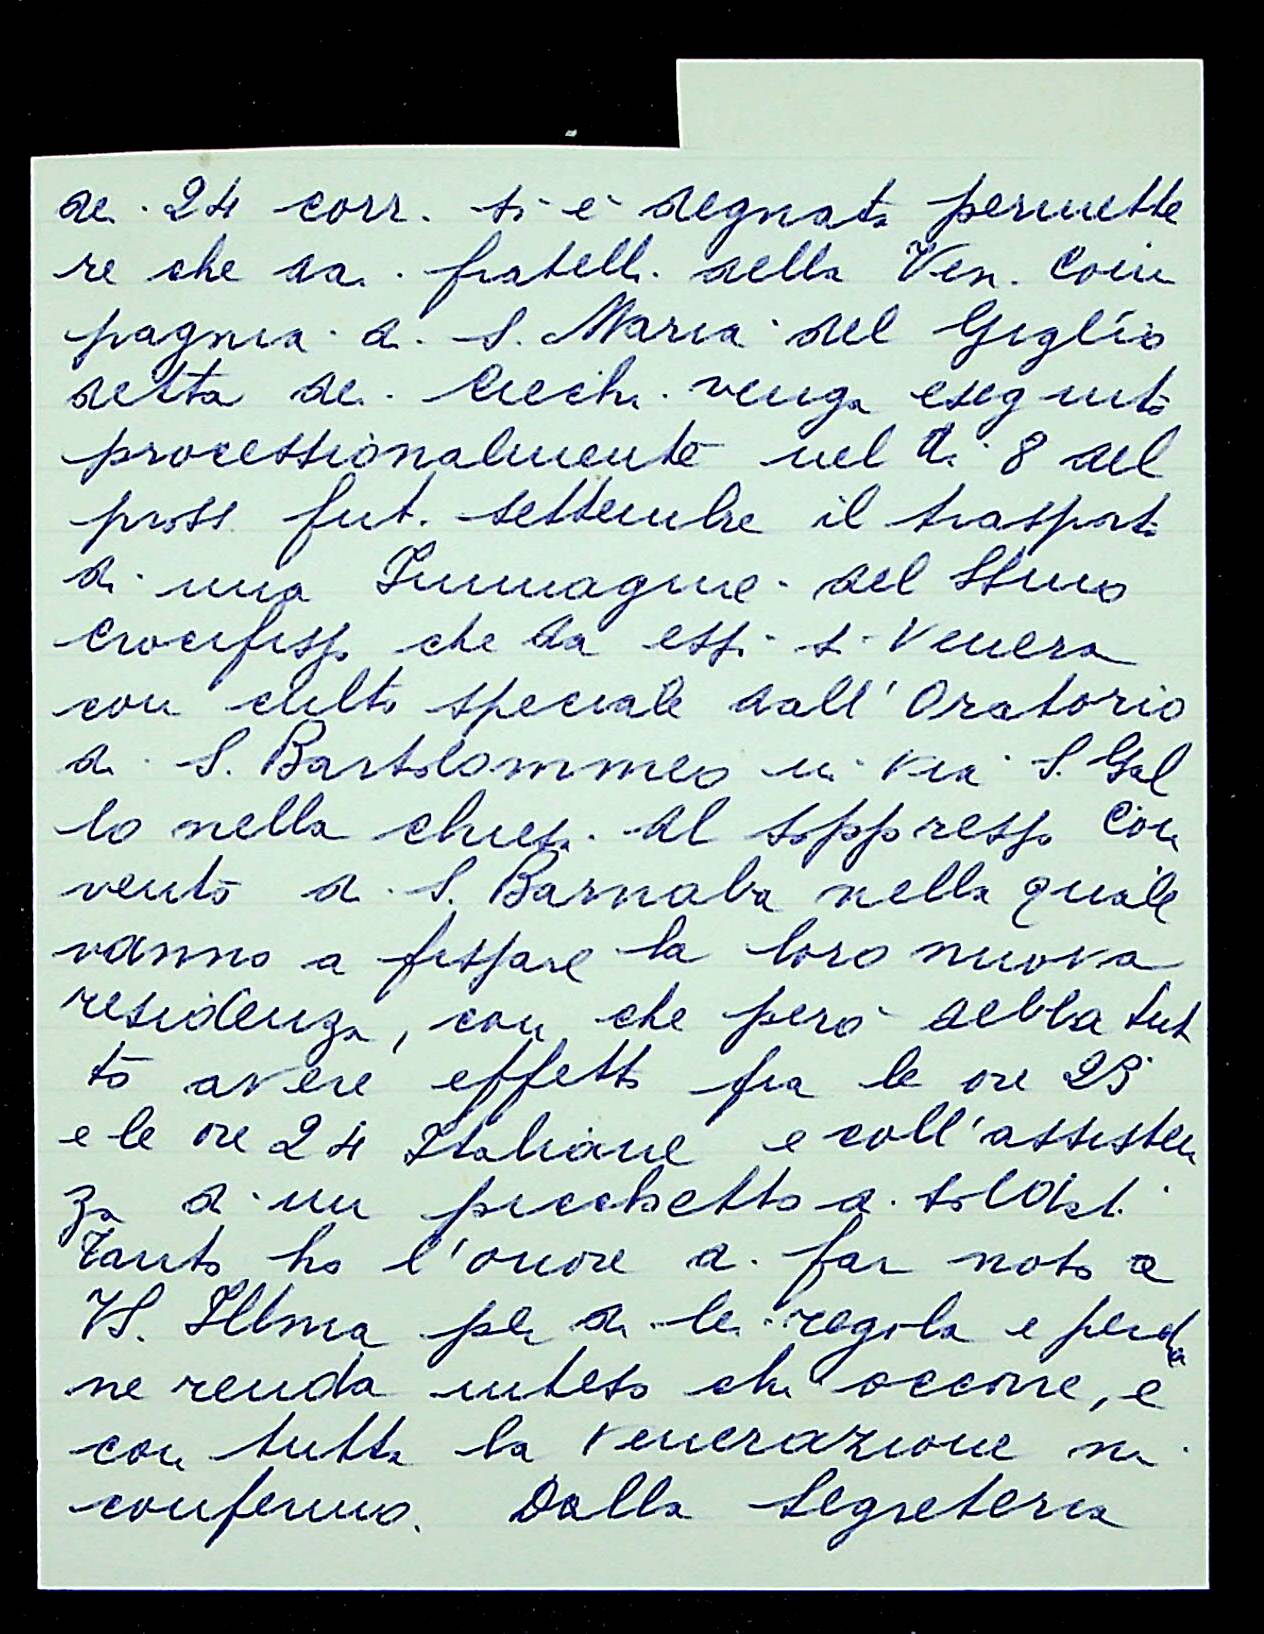 dei 24 corr. si è degnata permette
re che dai fratelli della Ven. Com
pagnia di S. Maria del Giglio
detta dei Ciechi venga eseguito
processionalmente nel dì 8 del
pross. fut. settembre il trasporto
di una Immagine del SSmo
Crocifisso che da essi si venera
con culto speciale dall'Oratorio
di S. Bartolommeo in via S. Gal
lo nella chiesa del soppresso Con
vento di S. Barnaba nella quale
vanno a fissare la loro nuova
residenza, con che però debba tut
to avere effetto fra le ore 23
e le ore 24 Italiane e coll'assisten
za di un picchetto di soldati.
Tanto ho l'onore di far noto a
VS. Illma per di lei regola e perchè
ne renda inteso chi occorre, e
con tutta la venerazione mi
confermo. Dalla Segreteria